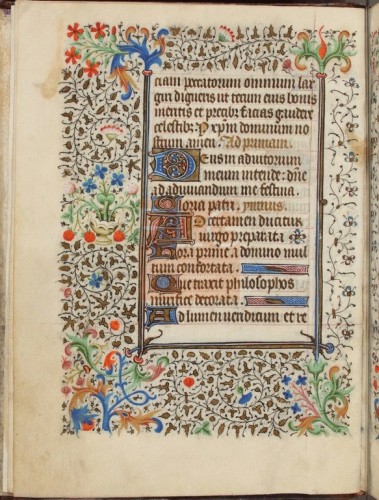 ciam peccatorum omnium lar
giri digneris ut tecum eius bonis
meritis et precibz facias gaudere
celestibz. P xpm dominum no
strum amen. Ad primam.
Deus in adiutorium
meum intende. dñe
ad adiuvandum me festina.
Gloria patri. ymnus.
Ad certamen ducitur
virgo preparata
Hora prime a domino mul
tum confortata.
Que traxit philosophos
mirifice decorata.
Ad lumen viventium et re